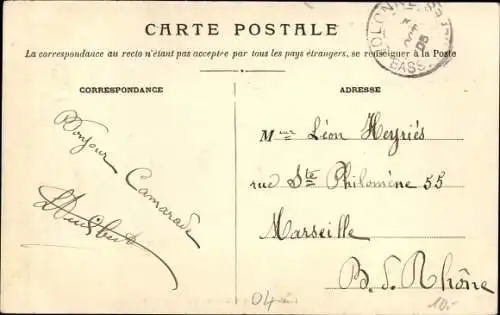 CARTE POSTALE
La correspondance au recto n'étant pas acceptée par tous les pays étrangers, se renseigner à la Poste
CORRESPONDANCE
ADRESSE
Bonjour Camarade
Mr Léon Heyriés
rue Ste Philomène 55
Marseille
B. d. Rhône
04
10.-